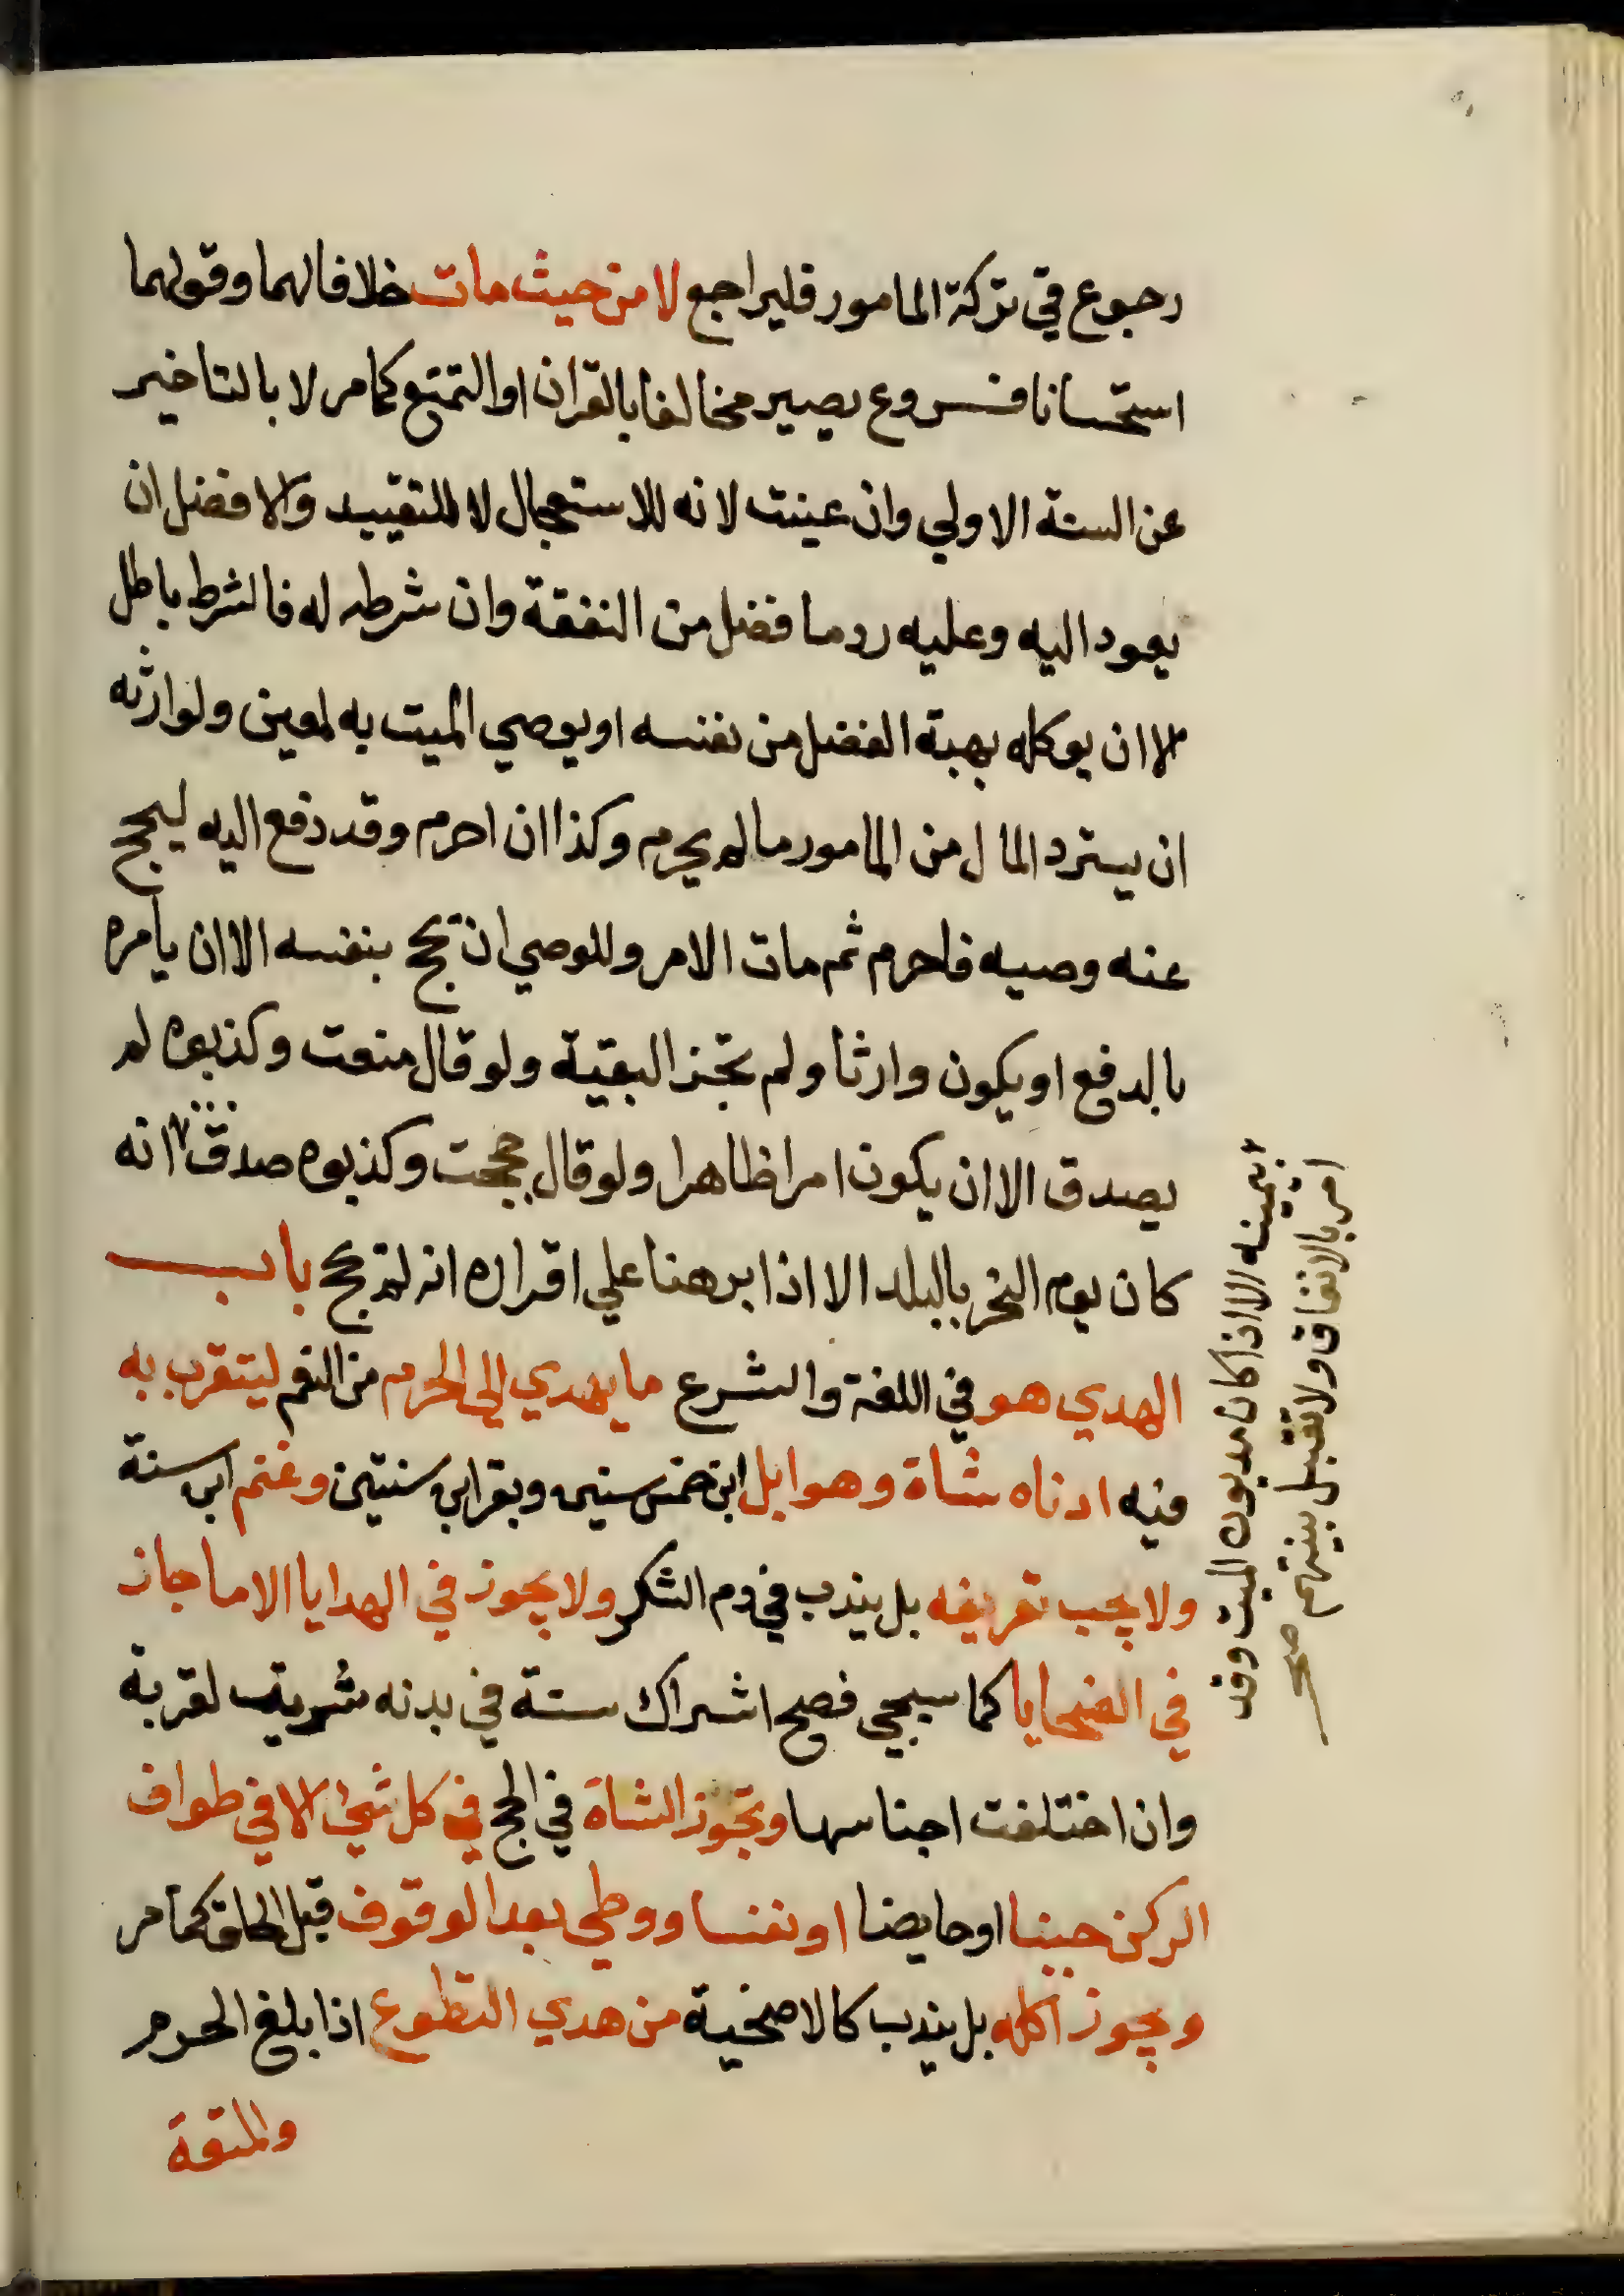 رجوع في تركة المامور فليراجع لا من حيث مات خلافا لهما وقولهما
استحسانا فروع يصير مخالفا بالقران او التمتع كما مر لا بالتاخير
عن السنة الاولي وان عينت لانه للاستعجال لا للتقييد والافضل ان
يعود اليه وعليه رد ما فضل من النفقة وان شرطه له فالشرط باطل
الا ان يوكله بهبة الفضل من نفسه او يوصي الميت به لمعين ولوارثه
ان يسترد المال من المامور ما لم يحرم وكذا ان احرم وقد دفع اليه ليحج
عنه وصيه فاحرم ثم مات الامر وللوصي ان يحج بنفسه الا ان يأمره
بالدفع او يكون وارثا ولم تجز البقية ولو قال منعت وكذبوه لم
يصدق الا ان يكون امرا ظاهرا ولو قال حججت وكذبوه صدق انه
كان يوم النحر بالبلد الا اذا برهنا علي اقراره انه لم يحج باب
الهدي هو في اللغة والشرع ما يهدي الي الحرم من النعم ليتقرب به
فيه ادناه شاة وهو ابل ابن خمس سنين وبقر ابن سنتين وغنم ابن سنة
ولا يجب تعريفه بل يندب في دم الشكر ولا يجوز في الهدايا الا ما جاز
في الضحايا كما سيجي فصح اشراك ستة في بدنه شريت لقربة
وان اختلفت اجناسها وتجوز الشاة في الحج في كل شئ الا في طواف
الركن جنبا او حايضا او نفسا ووطي بعد الوقوف قبل الحلق كما مر
ويجوز اكله بل يندب كالاضحية من هدي التطوع اذا بلغ الحرم
والمتعة
بيمينه الا اذا كان مديون الميت وقد
امر بالانفاق ولا تقبل بينتهم صح